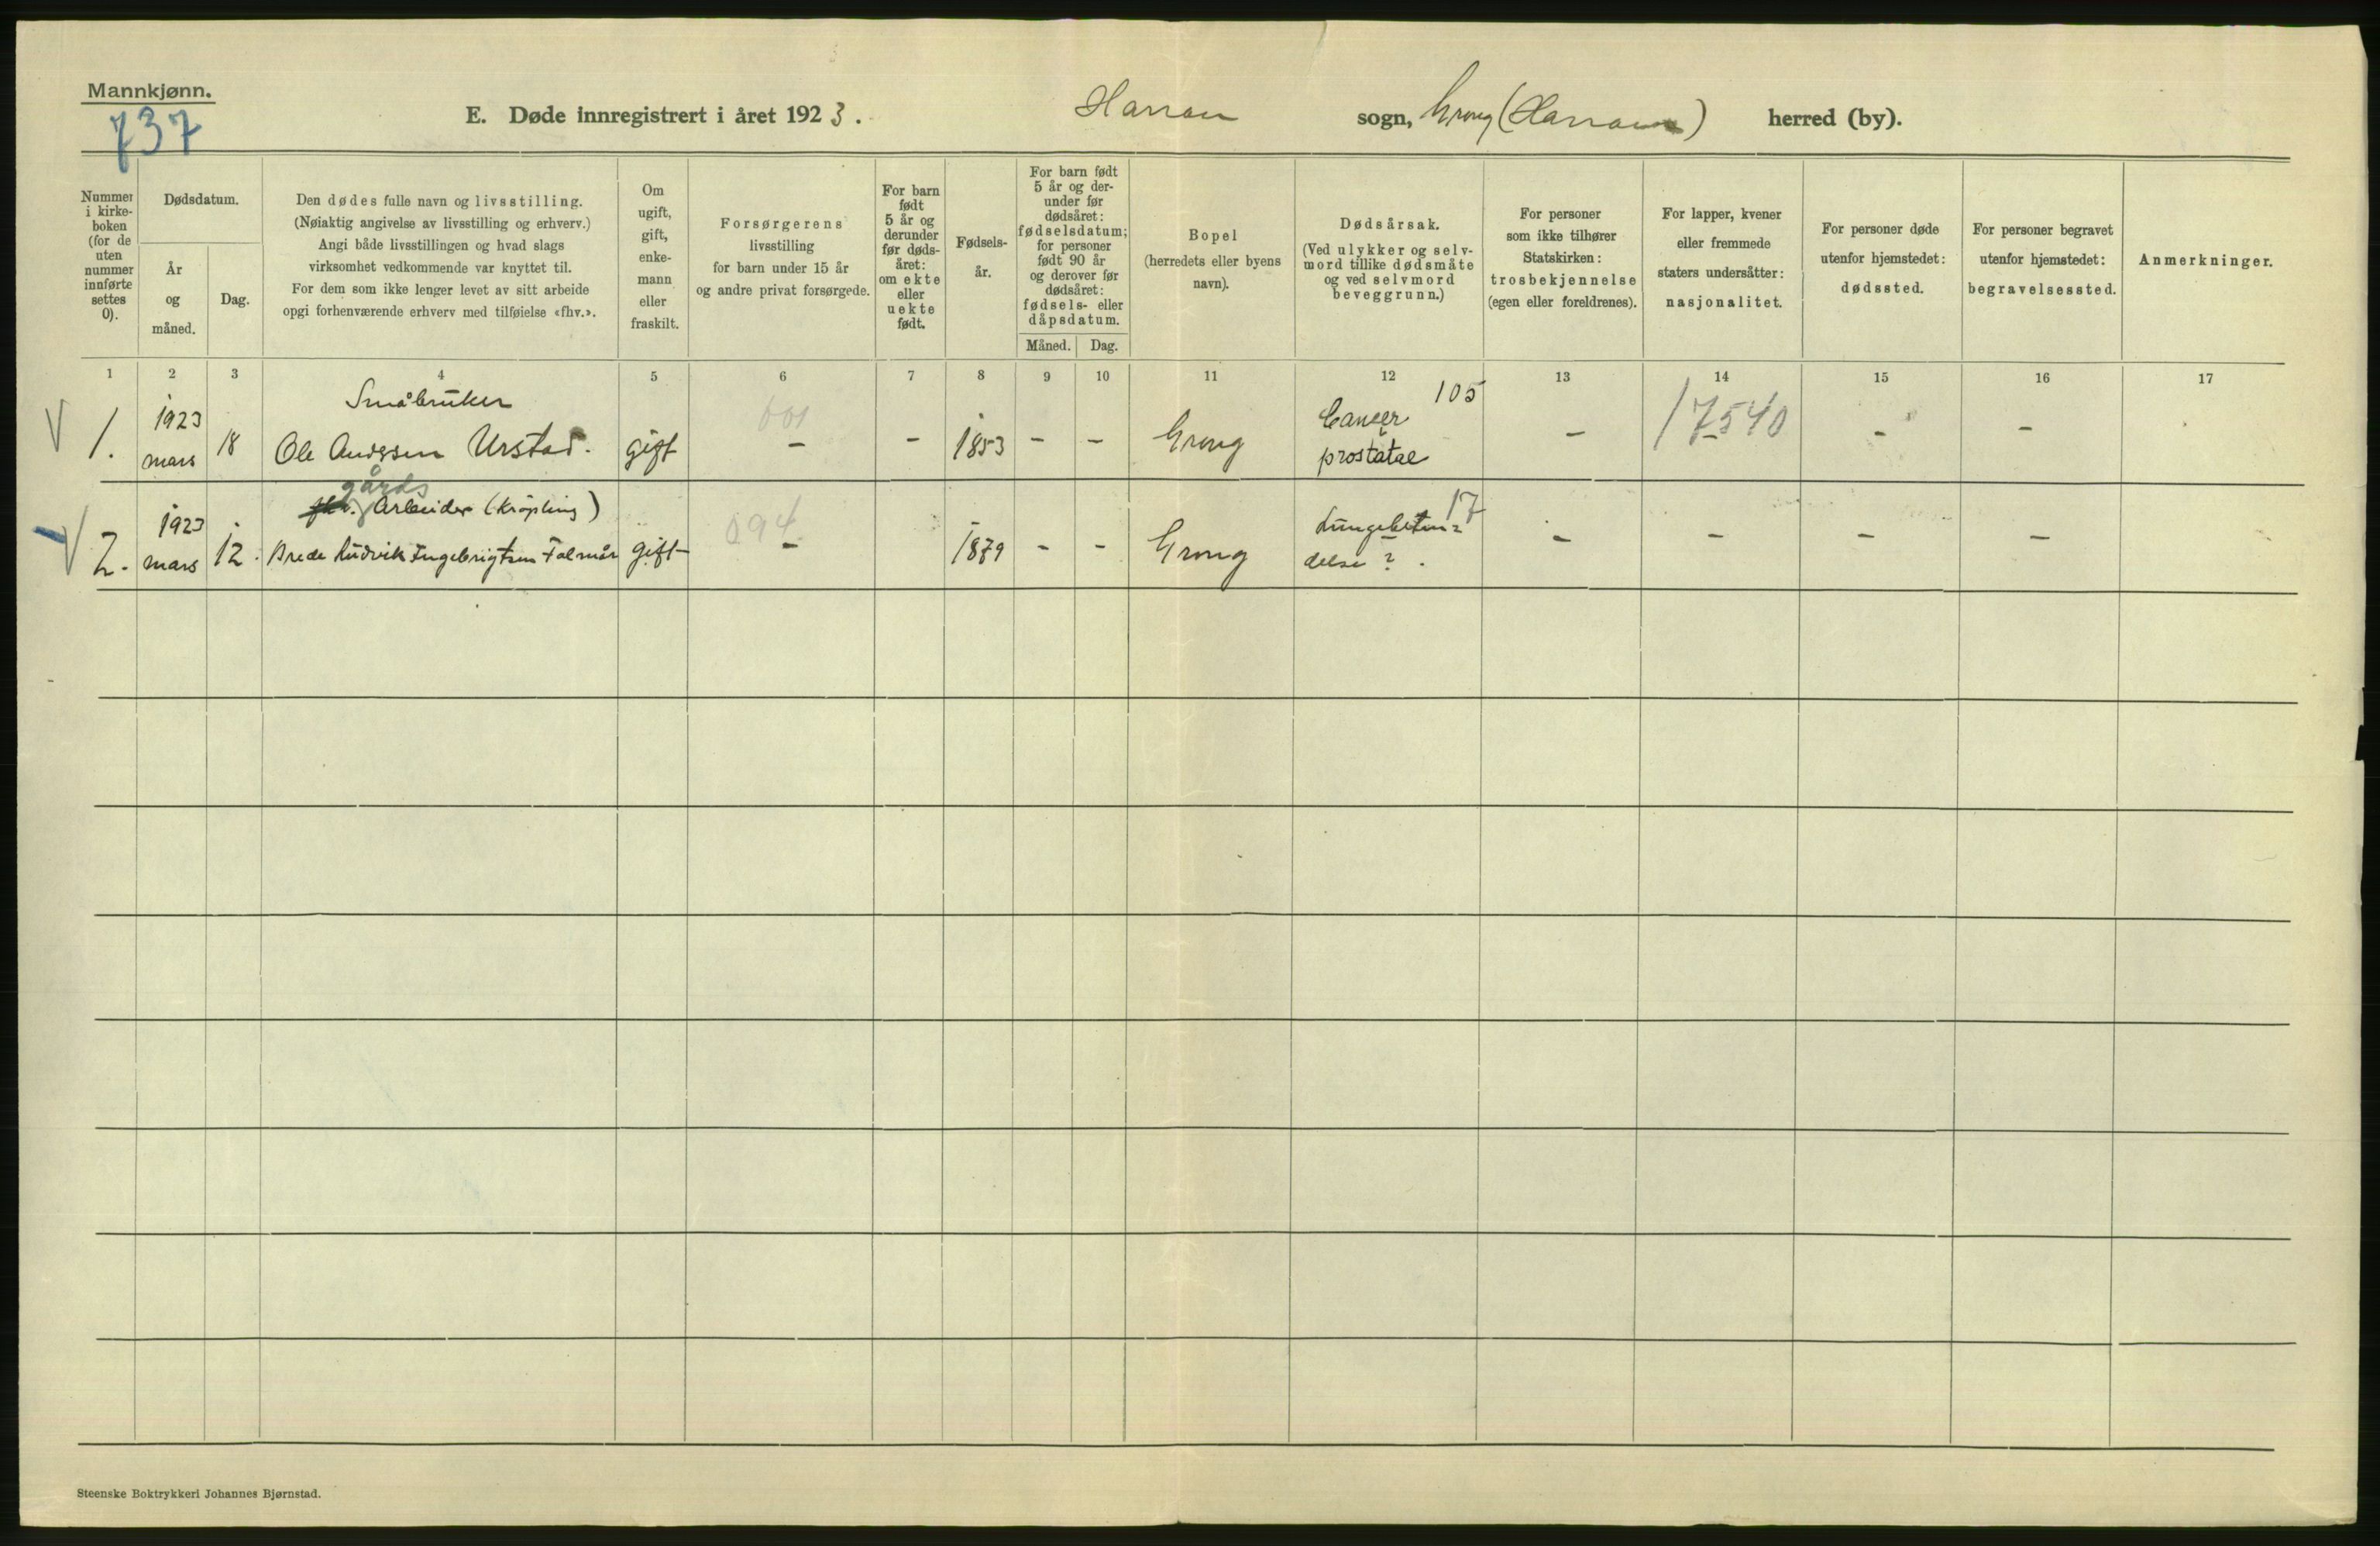 Mannkjønn.
737
E. Døde innregistrert i året 1923. Harran sogn, Grong (Harran) herred (by).
Nummer i kirke-boken (for de uten nummer innførte settes 0).
Dødsdatum.
År og måned.
Dag.
Den dødes fulle navn og livsstilling.
(Nøiaktig angivelse av livsstilling og erhverv.)
Angi både livsstillingen og hvad slags
virksomhet vedkommende var knyttet til.
For dem som ikke lenger levet av sitt arbeide
opgi forhenværende erhverv med tilføielse «fhv.».
Om
ugift,
gift,
enke-
mann
eller
fraskilt.
Forsørgerens
livsstilling
for barn under 15 år
og andre privat forsørgede.
For barn
født
5 år og
derunder
før døds-
året:
om ekte
eller
uekte
født.
Fødsels-
år.
For barn født
5 år og der-
under før
dødsåret:
fødselsdatum;
for personer
født 90 år
og derover før
dødsåret:
fødsels- eller
dåpsdatum.
Måned. Dag.
Bopel
(herredets eller byens
navn).
Dødsårsak.
(Ved ulykker og selv-
mord tillike dødsmåte
og ved selvmord
beveggrunn.)
For personer
som ikke tilhører
Statskirken:
trosbekjennelse
(egen eller foreldrenes).
For lapper, kvener
eller fremmede
staters undersåtter:
nasjonalitet.
For personer døde
utenfor hjemstedet:
dødssted.
For personer begravet
utenfor hjemstedet:
begravelsessted.
Anmerkninger.
1 2 3 4 5 6 7 8 9 10 11 12 13 14 15 16 17
Småbruker 105
V 1923 001 Cancer 17540
1. mars 18 Ole Anderssen Urstad. gift - - 1853 - - Grong prostatae - - - -
gårds
Arbeider (Krøpling) 17
V 1923 094 Lungebeten=
2. mars 12. Brede Ludvik Ingebrigtsen Falmår gift - 1879 - - Grong delse ? . - - - -
Steenske Boktrykkeri Johannes Bjørnstad.